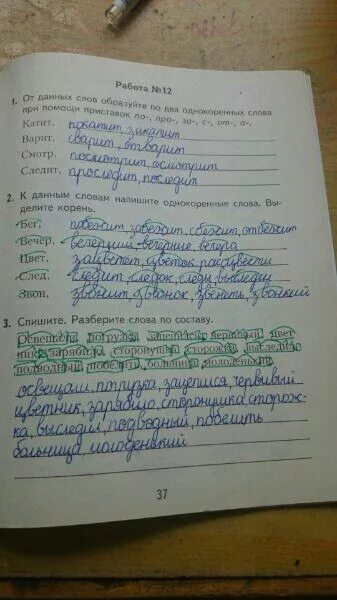 Работа №12
1. От данных слов образуйте по два однокоренных слова
при помощи приставок по-, про-, за-, с-, от-, о-.
Катит, покатит, закатит
Варит, сварит, отварит
Смотр, посмотрит, осмотрит
Следит, проследит, последит
2. К данным словам напишите однокоренные слова. Вы-
делите корень.
Бег, побежит, забежит, сбежит, отбежит
Вечер, вечерний, вечерние, вечера
Цвет, зацветет, цветок, расцвести
След, следит, следок, следы, выследил
Звон, звонит, звонок, звенеть, звонкий
3. Спишите. Разберите слова по составу.
Освещали, погрузка, червивый, цвет-
ник, зарябило, сторонушка, сторожка, выследил,
подводный, побелить, больница, молоденький.
освещали, погрузка, зацепился, червивый
цветник, зарябило, сторонушка, сторож-
ка, выследил, подводный, побелить
больница, молоденький
37